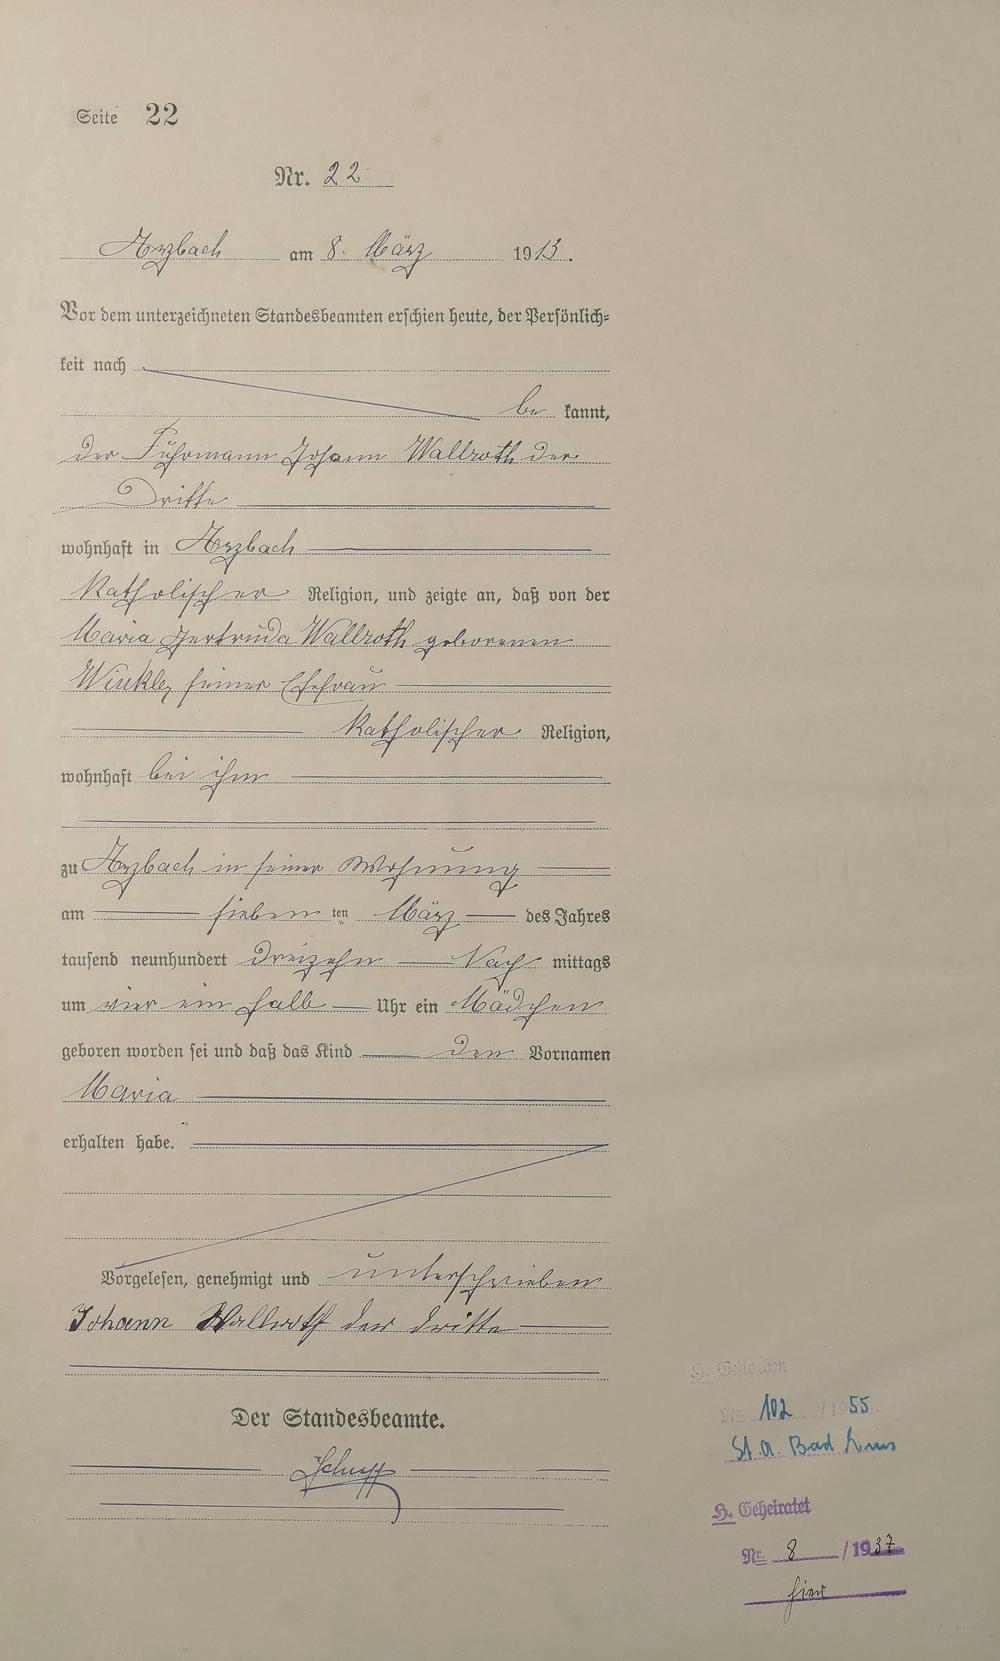 Seite 22
Nr. 22
Arzbach am 8. März 1913.
Vor dem unterzeichneten Standesbeamten erschien heute, der Persönlich=
keit nach
be kannt,
der Fuhrmann Johann Wallroth der
Dritte
wohnhaft in Arzbach
katholischer Religion, und zeigte an, daß von der
Maria Gertruda Wallroth geborenen
Winkler, seiner Ehefrau
katholischer Religion,
wohnhaft bei ihm
zu Arzbach in seiner Wohnung
am sieben ten März des Jahres
tausend neunhundert dreizehn Nach mittags
um vier ein halb Uhr ein Mädchen
geboren worden sei und daß das Kind den Vornamen
Maria
erhalten habe.
Vorgelesen, genehmigt und unterschrieben
Johann Wallroth der dritte
Der Standesbeamte.
H. Gestorben
Nr. 102 /1955
St. A. Bad Ems
H. Geheiratet
Nr. 8 /1937
hier